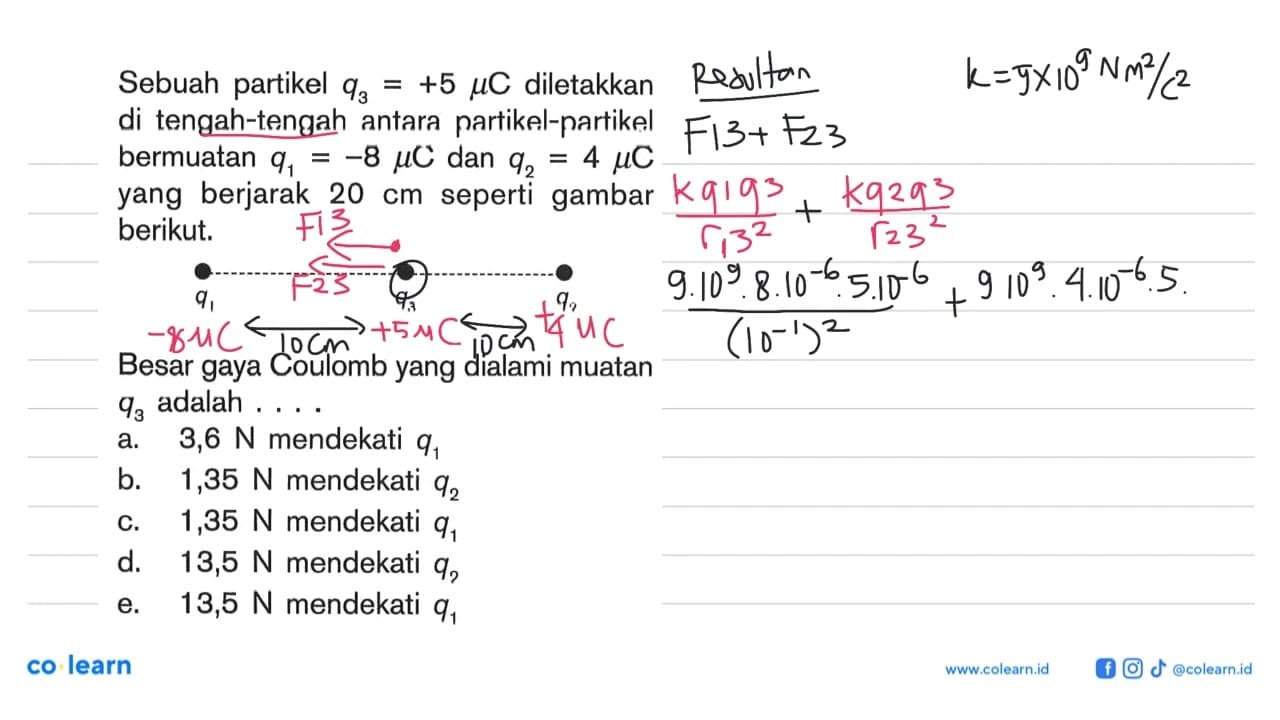 Sebuah partikel q3 = +5 μC diletakkan
di tengah-tengah antara partikel-partikel
bermuatan q1 = −8 μC dan q2 = 4 μC
yang berjarak 20 cm seperti gambar
berikut.
F13
F23
q1 q3 q2
-8μC 10cm +5μC 10cm +4μC
Besar gaya Coulomb yang dialami muatan
q3 adalah . . . .
a. 3,6 N mendekati q1
b. 1,35 N mendekati q2
c. 1,35 N mendekati q1
d. 13,5 N mendekati q2
e. 13,5 N mendekati q1
Resultan
k=9×10^9 Nm²/c²
F13+ F23
kq1q3/r13² + kq2q3/r23²
9.10^9.8.10^-6.5.10^-6 + 9 10^9.4.10^-6.5.
(10^-1)²
co·learn
www.colearn.id
@colearn.id